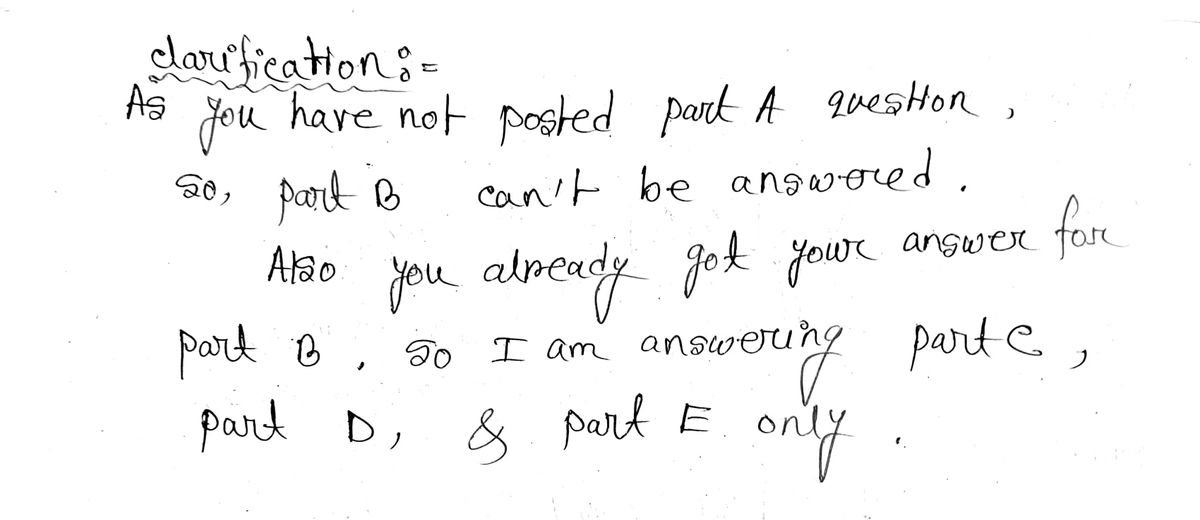 clarification :-
As you have not posted part A question,
so, part B can't be answered.
Also you already got your answer for
part B, so I am answering part C,
part D, & part E only.